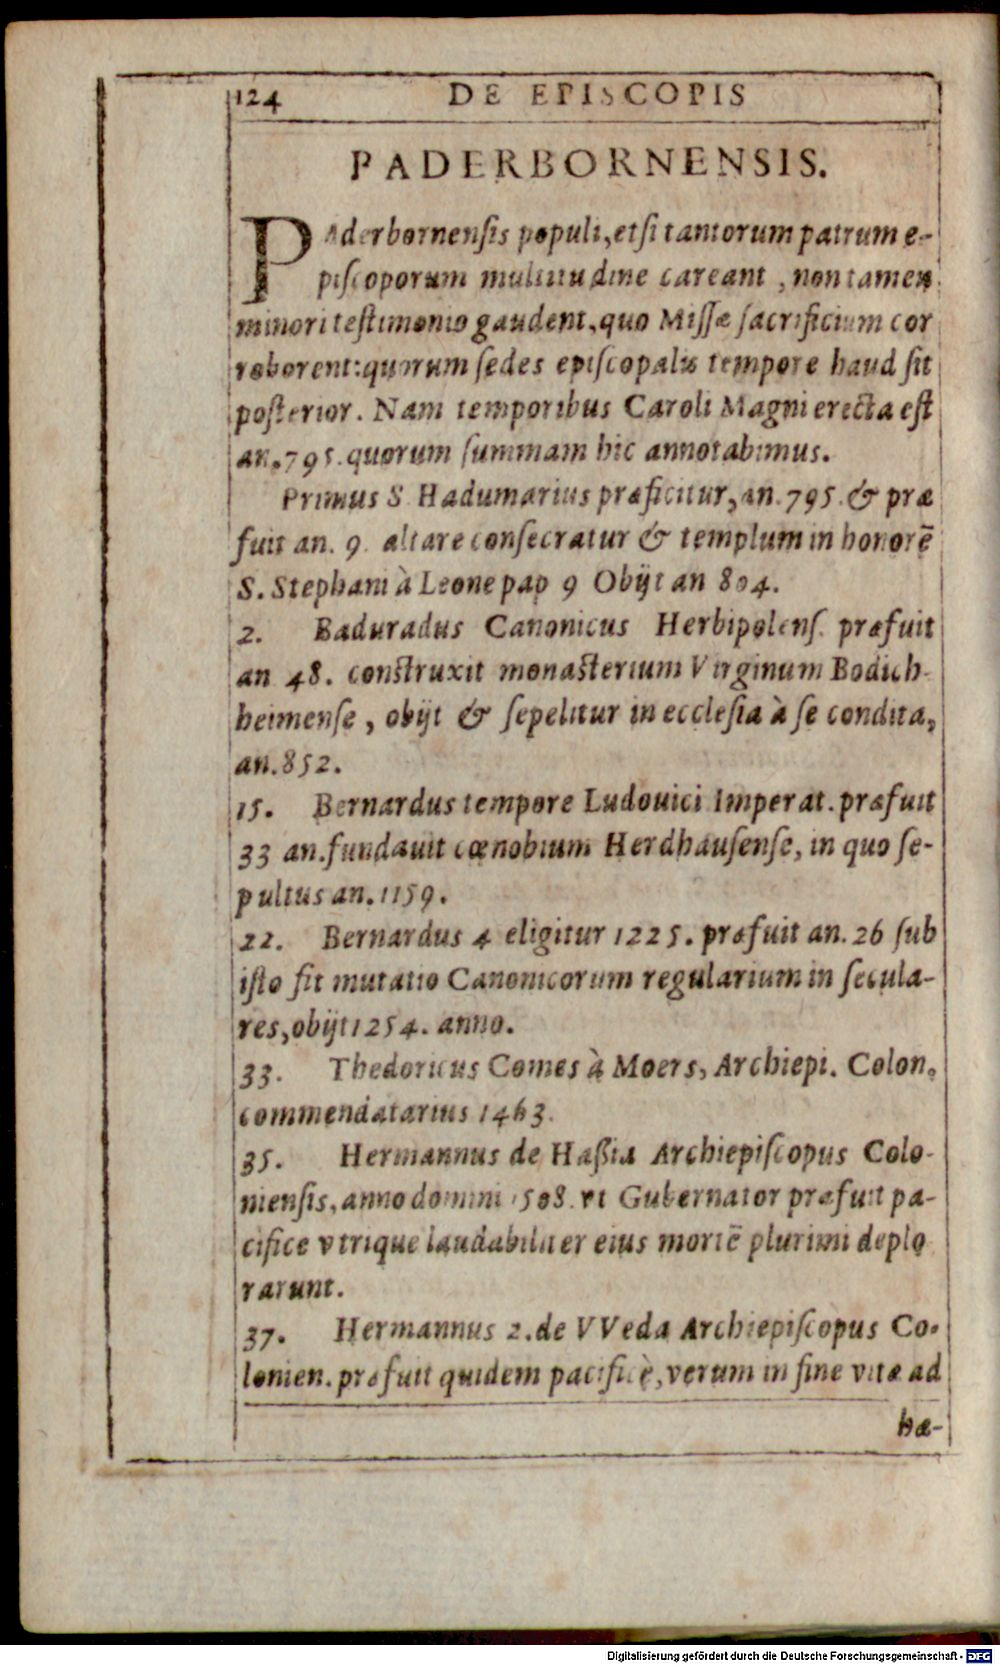 124 DE EPISCOPIS
PADERBORNENSIS.
PAderbornensis populi, etsi tantorum patrum e-
piscoporum multitudine careant, non tamen
minori testimonio gaudent, quo Missæ sacrificium cor
roborent: quorum sedes episcopalis tempore haud sit
posterior. Nam temporibus Caroli Magni erecta est
an. 795. quorum summam hic annotabimus.
Primus S. Hadumarius præficitur, an. 795. & præ
fuit an. 9. altare consecratur & templum in honorē
S. Stephani à Leone pap 9 Obijt an 804.
2. Baduradus Canonicus Herbipolens. præfuit
an 48. construxit monasterium Virginum Bodich-
heimense, obijt & sepelitur in ecclesia à se condita,
an. 852.
15. Bernardus tempore Ludouici Imperat. præfuit
33 an. fundauit cœnobium Herdhausense, in quo se-
pultus an. 1159.
22. Bernardus 4 eligitur 1225. præfuit an. 26 sub
isto fit mutatio Canonicorum regularium in secula-
res, obijt 1254. anno.
33. Thedoricus Comes à Moers, Archiepi. Colon.
commendatarius 1463.
35. Hermannus de Haßia Archiepiscopus Colo-
niensis, anno domini 1508. vt Gubernator præfuit pa-
cifice vtrique laudabiliter eius mortē plurimi deplo
rarunt.
37. Hermannus 2. de VVeda Archiepiscopus Co-
lonien. præfuit quidem pacificè, verum in fine vitæ ad
hæ-
Digitalisierung gefördert durch die Deutsche Forschungsgemeinschaft - DFG